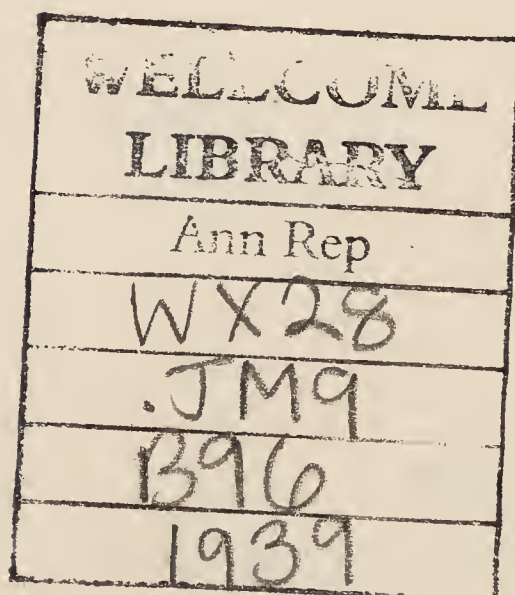 WELLCOME
LIBRARY
Ann Rep
WX28
.JM9
B96
1939